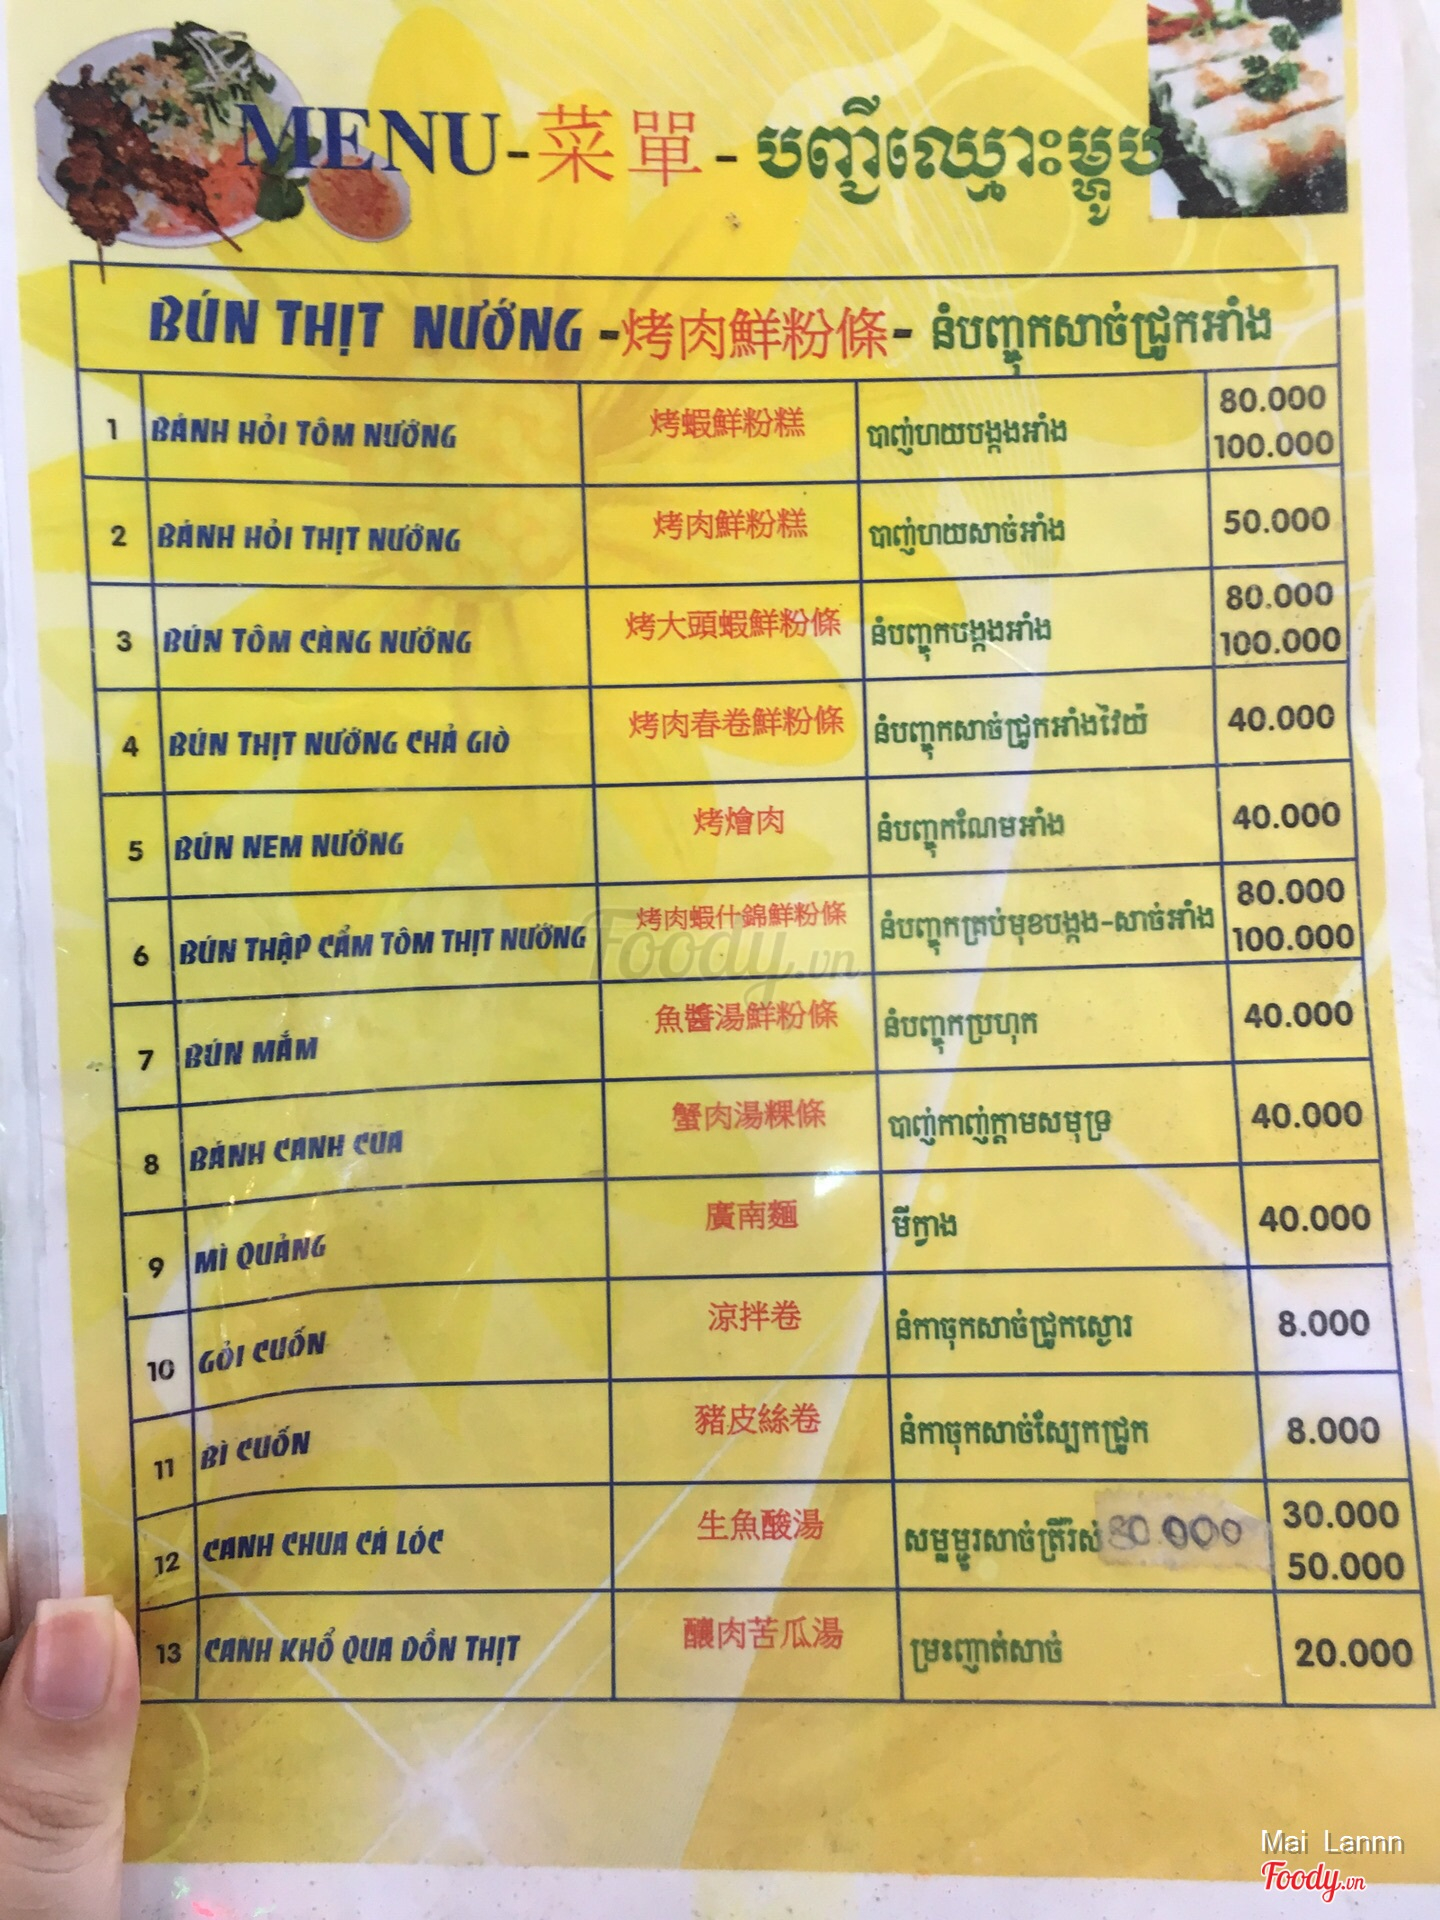 MENU - 菜單 - បញ្ជីឈ្មោះម្ហូប
BÚN THỊT NƯỚNG - 烤肉鮮粉條 - នំបញ្ចុកសាច់ជ្រូកអាំង
1 BÁNH HỎI TÔM NƯỚNG 烤蝦鮮粉糕 បាញ់ហយបង្កងអាំង 80.000
100.000
2 BÁNH HỎI THỊT NƯỚNG 烤肉鮮粉糕 បាញ់ហយសាច់អាំង 50.000
3 BÚN TÔM CÀNG NƯỚNG 烤大頭蝦鮮粉條 នំបញ្ចុកបង្កងអាំង 80.000
100.000
4 BÚN THỊT NƯỚNG CHẢ GIÒ 烤肉春卷鮮粉條 នំបញ្ចុកសាច់ជ្រូកអាំងវៃយ៉ 40.000
5 BÚN NEM NƯỚNG 烤燴肉 នំបញ្ចុកណែមអាំង 40.000
6 BÚN THẬP CẨM TÔM THỊT NƯỚNG 烤肉蝦什錦鮮粉條 នំបញ្ចុកគ្រប់មុខបង្កង-សាច់អាំង 80.000
100.000
7 BÚN MẮM 魚醬湯鮮粉條 នំបញ្ចុកប្រហុក 40.000
8 BÁNH CANH CUA 蟹肉湯粿條 បាញ់កាញ់ក្តាមសមុទ្រ 40.000
9 MÌ QUẢNG 廣南麵 មីក្វាង 40.000
10 GỎI CUỐN 涼拌卷 នំកាចុកសាច់ជ្រូកស្ងោរ 8.000
11 BÌ CUỐN 豬皮絲卷 នំកាចុកសាច់ស្បែកជ្រូក 8.000
12 CANH CHUA CÁ LÓC 生魚酸湯 សម្លម្ជូរសាច់ត្រីរ៉ស់ 80.000 30.000
50.000
13 CANH KHỔ QUA DỒN THỊT 釀肉苦瓜湯 ម្រះញាត់សាច់ 20.000
Foody.vn
Mai Lannn
Foody.vn